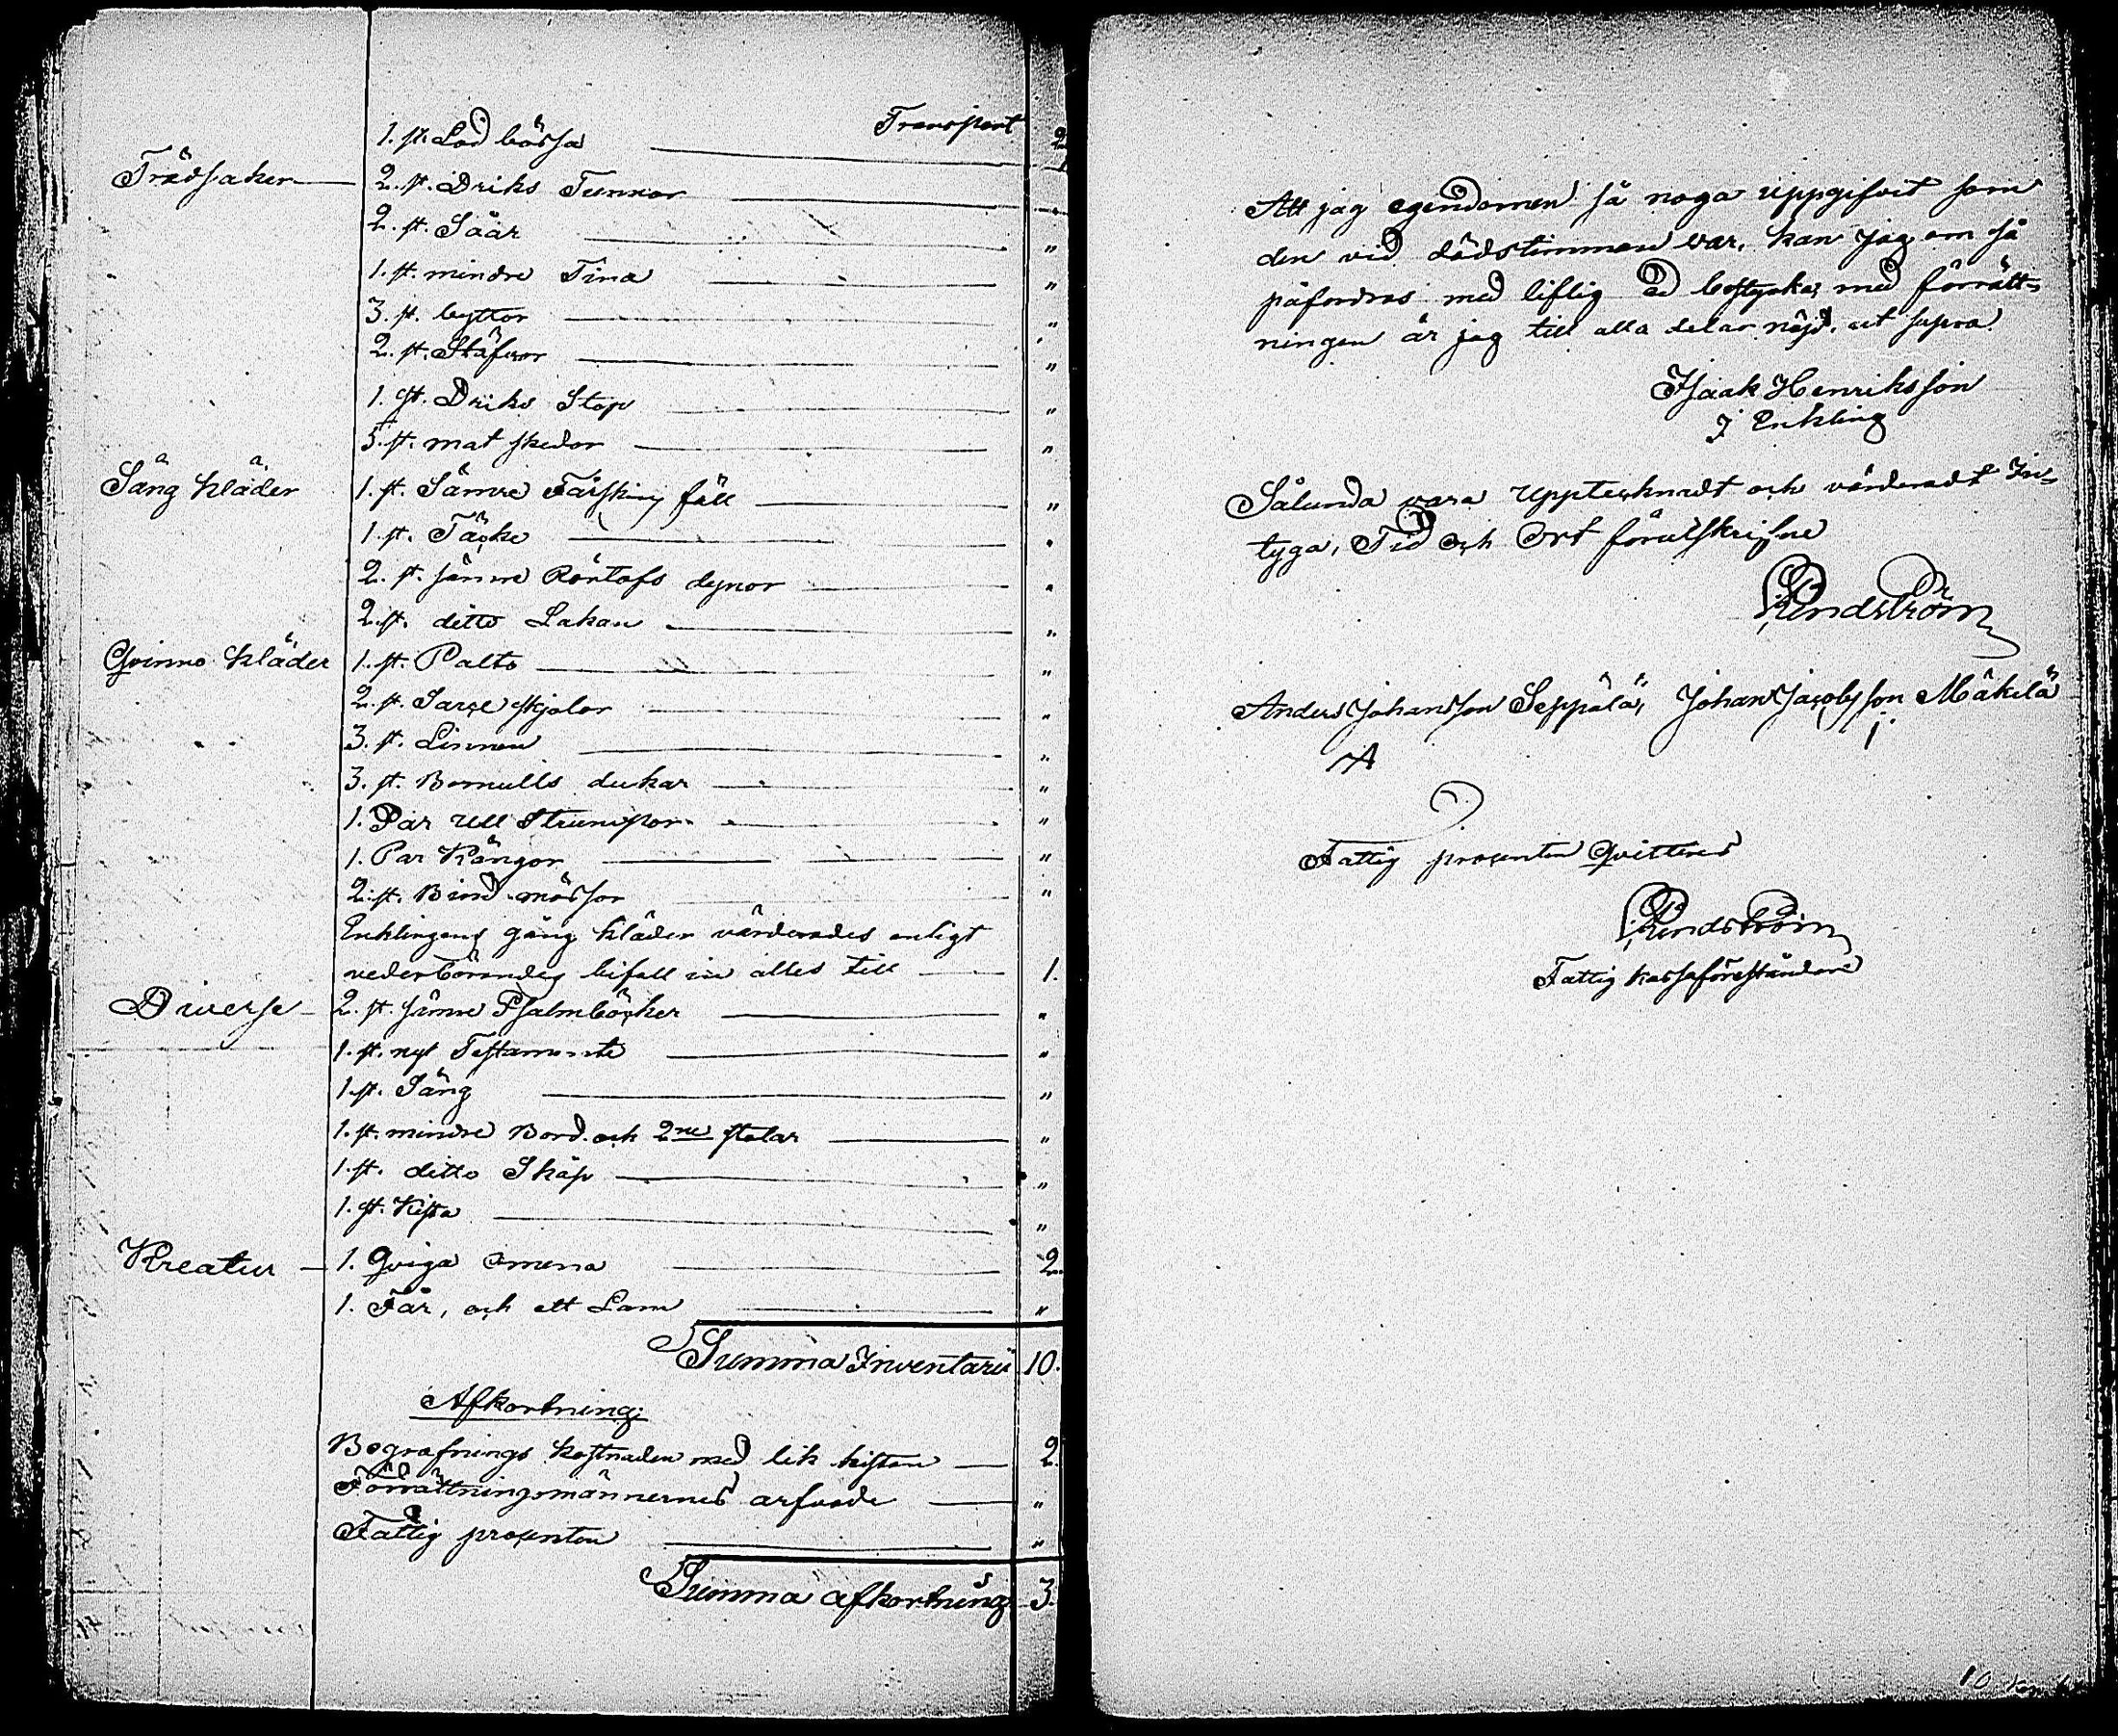 Transport 2
1. st. Lod bössa
Trädsaker 2. st. Driks Tunnor
2. st. Såår "
1. st. mindre Tina "
3. st. byttor "
2. st. Stäfvor "
1. st. Driks Stop "
5. st. mat skedor "
Säng kläder 1. st. Sämre Fårskins fäll "
1. st. Täcke "
2. st. sämre dynor "
2. st. ditto Lakan "
Qvinno kläder 1. st. Palto "
2. st. Sarge skjolar "
3. st. Linnen "
3. st. Bomulls dukar "
1. Par Ull Strumpor "
1. Par Kängor "
2. st. Bind mössor "
Enklingens gång kläder värderades enligt
vederbörandes bifall in alles till 1.
Diverse 2. st. sämre Psalmböcker "
1. st. nyt Testamente "
1. st. Säng "
1. st. mindre Bord och 2ne stolar "
1. st. ditto Skåp "
1. st. Kista "
Kreatur 1. Qviga Omena 2.
1. Får, och ett Lam "
Summa Inventarii 10.
Afkortning:
Begrafnings kostnaden med lik kistan 2.
Förrättningsmännernes arfvode "
Fattig procenten "
Summa afkortning 3.
Att jag egendomen så noga uppgifvit som
den vid dödstimmen var, kan jag om så
påfordras med liflig Ed bestyrka, med förrätt-
ningen är jag till alla delar nöjd. ut supra.
Isaak Henriksson
I Enkling
Sålunda vara Upptecknadt och värderadt In-
tyga, Tid och Ort förutskrifne
Lindström
Anders Johansson Seppälä, Johan Jacobsson Mäkelä
A
Fattig procenten Qvitteras
Lindström
Fattig kassaföreståndare
10